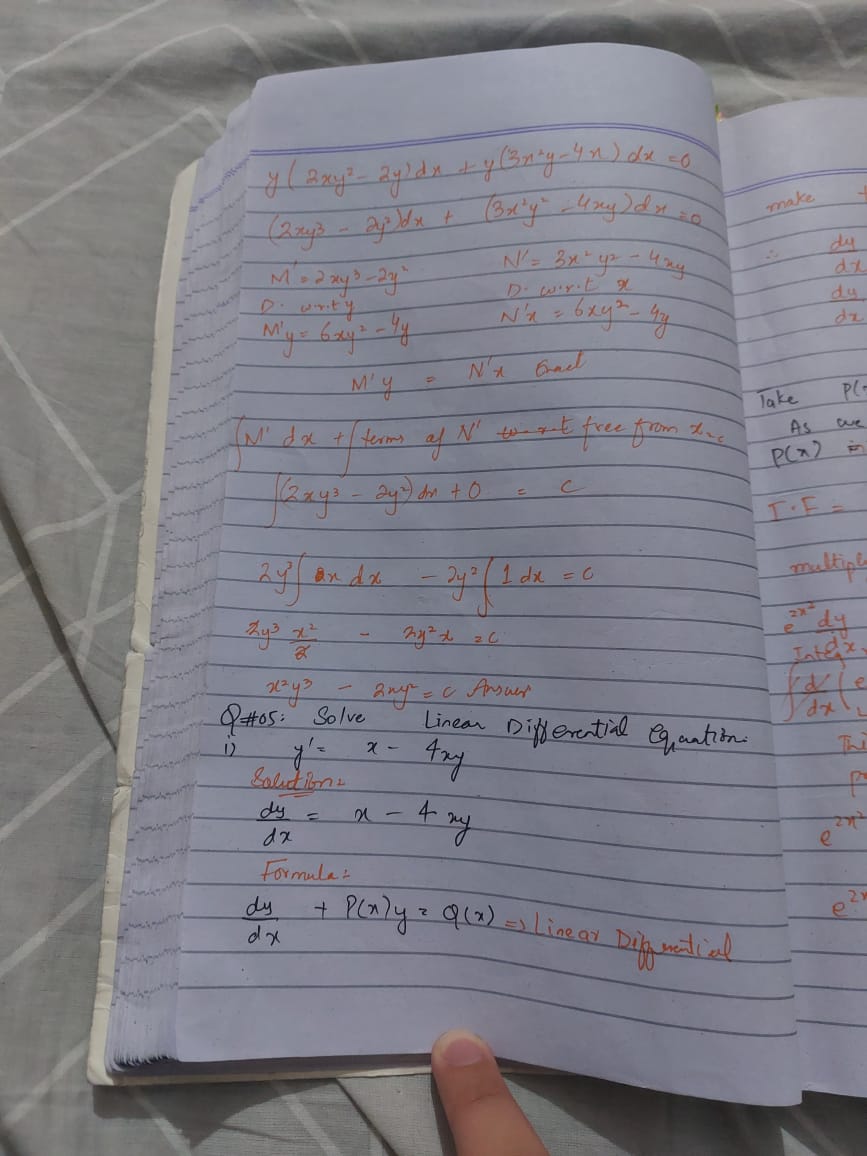 y(2xy² - 2y)dx + y(3x²y - 4x)dx = 0
(2xy³ - 2y²)dx + (3x²y² - 4xy)dx = 0
M' = 2xy³ - 2y² N' = 3x²y² - 4xy
D. w.r.t y D. w.r.t x
M'y = 6xy² - 4y N'x = 6xy² - 4y
M'y = N'x Exact
∫M' dx + ∫terms of N' free from x = c
∫(2xy³ - 2y²)dx + 0 = C
2y³∫x dx - 2y²∫1 dx = c
2y³ x²/2 - 2y²x = c
x²y³ - 2xy² = c Answer
Q#05: Solve Linear Differential Equation.
i) y' = x - 4xy
Solution:
dy/dx = x - 4xy
Formula:
dy/dx + P(x)y = Q(x) => Linear Differential
make
∴ dy/dx
dy/dx
Take P(
As we
P(x) in
I.F =
multipl
e^2x² dy/dx
Integ
∫d/dx(e
e^2x²
e^2x